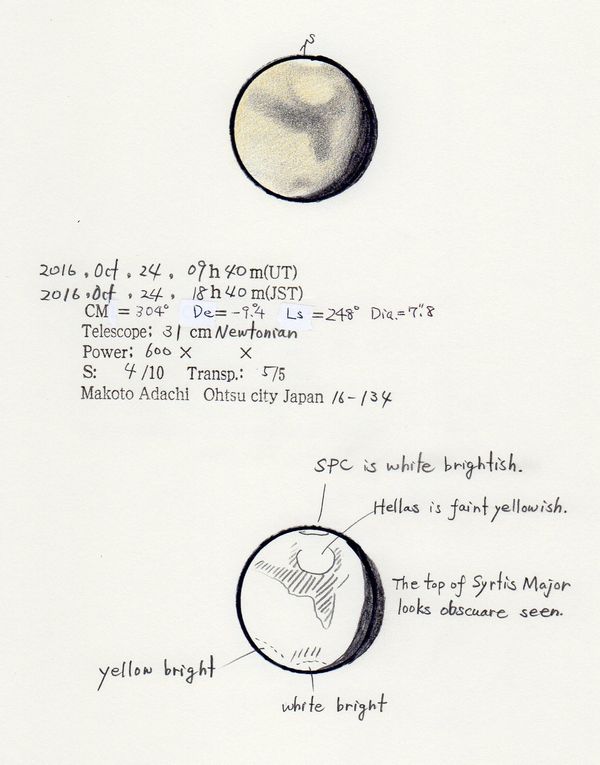 S
2016, Oct, 24, 09h 40m(UT)
2016, Oct, 24, 18h 40m(JST)
CM = 304° De = -9.°4 Ls = 248° Dia. = 7".8
Telescope: 31 cm Newtonian
Power: 600 × ×
S: 4/10 Transp.: 5/5
Makoto Adachi Ohtsu city Japan 16-134
SPC is white brightish.
Hellas is faint yellowish.
The top of Syrtis Major
looks obscuare seen.
yellow bright
white bright